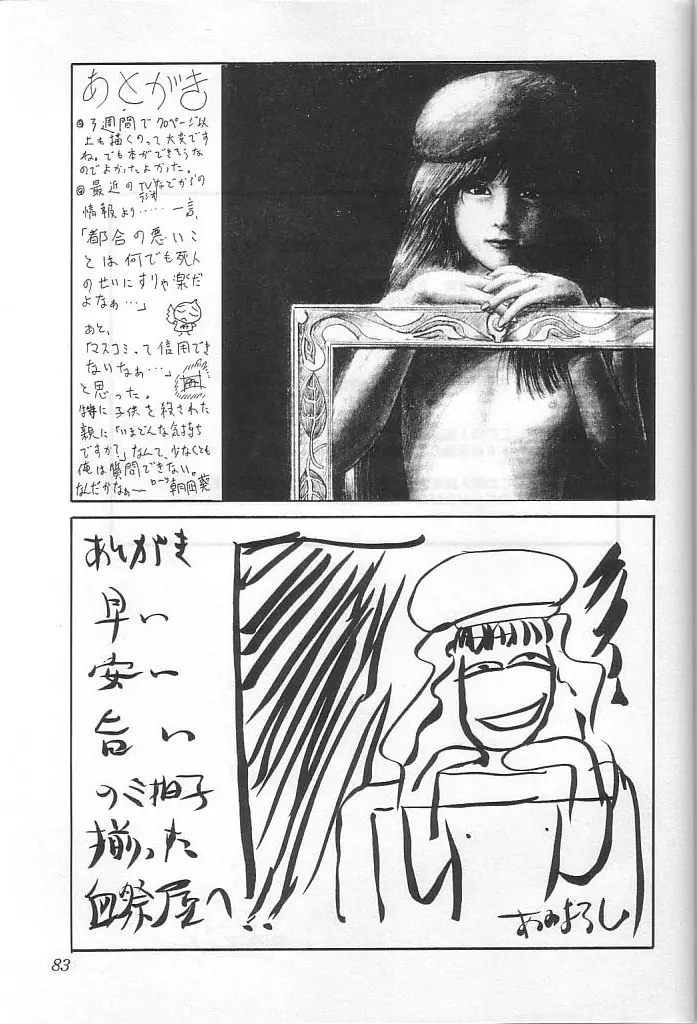 あとがき
◎3週間で70ページ以
上も描くのって大変です
ね。でも本ができそうな
のでよかったよかった。
◎最近のTVなどからの
ラジオ
情報より……一言、
「都合の悪いこ
とは何でも死人
のせいにすりゃ楽だ
よなぁ…」
あと、
「マスコミって信用でき
ないなぁ…」
と思った。
特に子供を殺された
親に「いまどんな気持ち
ですか?」なんて、少なくとも
俺は質問できない。
なんだかなぁ〜
朝岡葵
あとがき
早い
安い
旨い
の三拍子
揃った
血祭屋へ!!
83